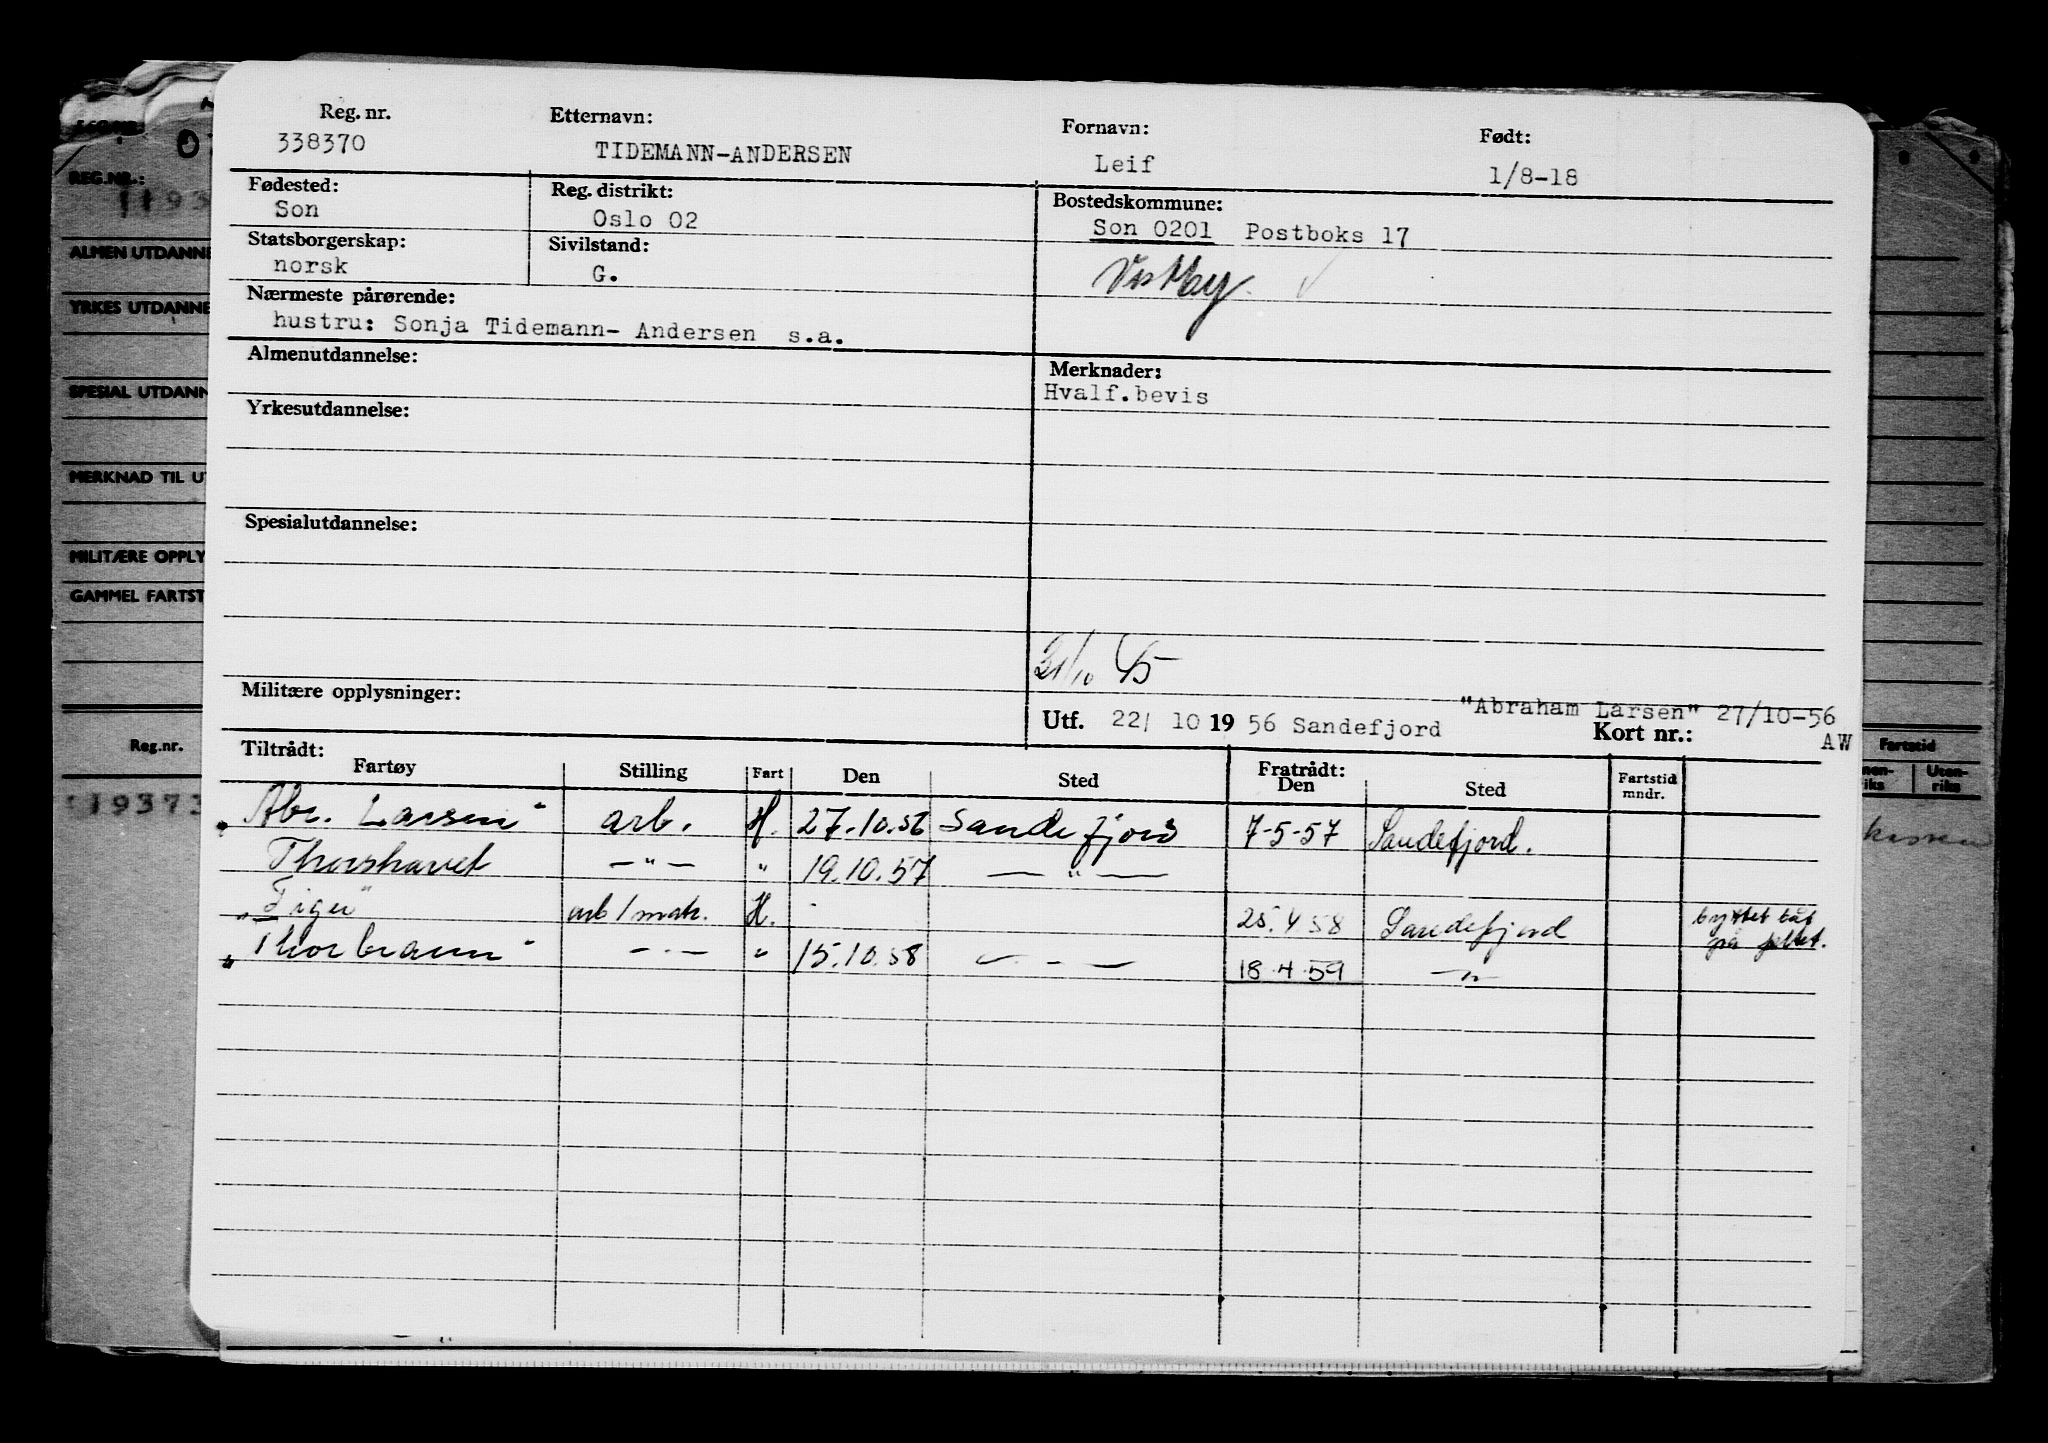 Reg. nr. Etternavn: Fornavn: Født:
338370 TIDEMANN-ANDERSEN Leif 1/8-18
Fødested: Reg. distrikt: Bostedskommune:
Son Oslo 02 Son 0201 Postboks 17
Statsborgerskap: Sivilstand:
norsk G. Vestby.
Nærmeste pårørende:
hustru: Sonja Tidemann- Andersen s.a.
Almenutdannelse: Merknader:
Hvalf.bevis
Yrkesutdannelse:
Spesialutdannelse:
31/10
Militære opplysninger:
"Abraham Larsen" 27/10-56
Utf. 22/ 10 19 56 Sandefjord Kort nr.: AW
Tiltrådt: Fratrådt:
Fartøy Stilling Fart Den Sted Den Sted Fartstid mndr.
"Abr. Larsen" arb. H. 27.10.56 Sandefjord 7-5-57 Sandefjord.
Thorshavet —"— " 19.10.57 —"—
"Tiger" arb/mat. H. 25.4 58 Sandefjord byttet båt på feltet.
"Thorbrann" —"— " 15.10.58 —"— 18.4.59 —"—
REG.NR.:
1193
ALMEN UTDANNE
YRKES UTDANNE
SPESIAL UTDANN
MERKNAD TIL U
MILITÆRE OPPLY
GAMMEL FARTST
Reg.nr.
19373
Fartstid
nen-riks Uten-riks